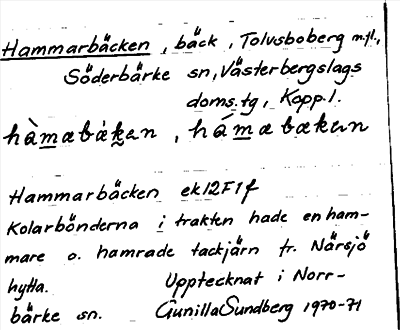 Hammarbäcken, bäck, Tolvsboberg m.fl.,
Söderbärke sn, Västerbergslags
doms.tg, Kopp.l.
hàmabäkæn, hámabækæn
Hammarbäcken ek12F1f
Kolarbönderna i trakten hade en ham-
mare o. hamrade tackjärn fr. Närsjö
hytta. Upptecknat i Norr-
bärke sn. Gunilla Sundberg 1970-71